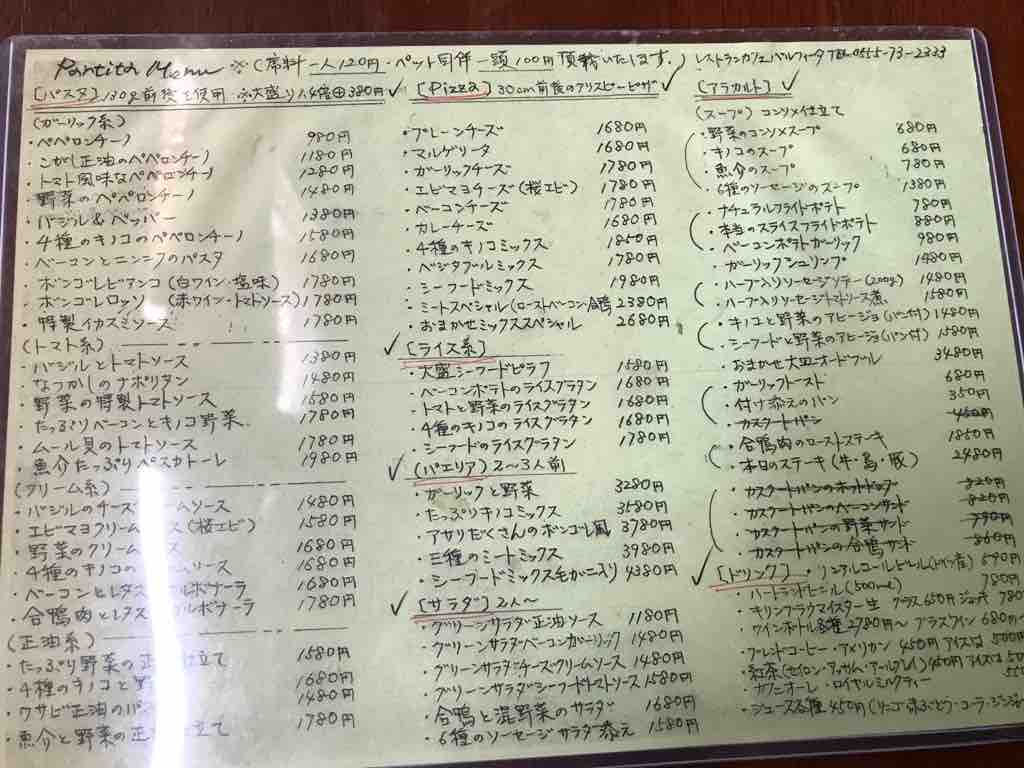 Partita Menu ※(席料一人120円・ペット同伴一頭100円頂戴いたします。) レストランカフェパルティータ TEL 0555-73-2333
[パスタ] 130g前後を使用 ※大盛り1.4倍⊕380円
(ガーリック系)
・ペペロンチーノ 980円
・こがし正油のペペロンチーノ 1180円
・トマト風味なペペロンチーノ 1280円
・野菜のペペロンチーノ 1480円
・バジル&ペッパー 1380円
・4種のキノコのペペロンチーノ 1580円
・ベーコンとニンニクのパスタ 1680円
・ボンゴレビアンコ(白ワイン・塩味) 1780円
・ボンゴレロッソ (赤ワイン・トマトソース) 1780円
・特製イカスミソース 1780円
(トマト系)
・バジルとトマトソース 1380円
・なつかしのナポリタン 1480円
・野菜の特製トマトソース 1580円
・たっぷりベーコンとキノコ野菜 1780円
・ムール貝のトマトソース 1780円
・魚介たっぷりペスカトーレ 1980円
(クリーム系)
・バジルのチーズクリームソース 1480円
・エビマヨクリーム ス(桜エビ) 1580円
・野菜のクリーム ース 1680円
・4種のキノコの ームソース 1680円
・ベーコンとレタス ルボナーラ 1680円
・合鴨肉とレタス ルボナーラ 1780円
(正油系)
・たっぷり野菜の正 仕立て 1580円
・4種のキノコと野 1680円
・ワサビ正油のパ 1480円
・魚介と野菜の正 仕立て 1780円
[Pizza] 30cm前後のクリスピーピザ
・プレーンチーズ 1680円
・マルゲリータ 1680円
・ガーリックチーズ 1780円
・エビマヨチーズ(桜エビ) 1780円
・ベーコンチーズ 1780円
・カレーチーズ 1680円
・4種のキノコミックス 1850円
・ベジタブールミックス 1780円
・シーフードミックス 1980円
・ミートスペシャル(ローストベーコン・合鴨) 2380円
・おまかせミックススペシャル 2680円
[ライス系]
・大盛シーフードピラフ 1580円
・ベーコンポテトのライスグラタン 1680円
・トマトと野菜のライスグラタン 1680円
・4種のキノコのライスグラタン 1680円
・シーフードのライスグラタン 1780円
[パエリア] 2〜3人前
・ガーリックと野菜 3280円
・たっぷりキノコミックス 3580円
・アサリたくさんのボンゴレ風 3780円
・三種のミートミックス 3980円
・シーフードミックス毛がに入り 4380円
[サラダ] 2人〜
・グリーンサラダ正油ソース 1180円
・グリーンサラダベーコンガーリック 1480円
・グリーンサラダチーズクリームソース 1480円
・グリーンサラダシーフードトマトソース 1580円
・合鴨と混野菜のサラダ 1680円
・6種のソーセージサラダ添え 1580円
[アラカルト]
(スープ) コンソメ仕立て
・野菜のコンソメスープ 680円
・キノコのスープ 680円
・魚介のスープ 780円
・6種のソーセージのスープ 1380円
・ナチュラルフライドポテト 780円
・本当のスライスフライドポテト 880円
・ベーコンポテトガーリック 980円
・ガーリックシュリンプ 1480円
・ハーブ入りソーセージソテー(200g) 1480円
・ハーブ入りソーセージトマトソース煮 1580円
・キノコと野菜のアヒージョ(パン付) 1480円
・シーフードと野菜のアヒージョ(パン付) 1580円
・おまかせ大皿オードブル 3480円
・ガーリックトースト 680円
・付け添えのパン 350円
・カスタートパン 450円
・合鴨肉のローストステキ 1850円
・本日のステーキ(牛・鳥・豚) 2480円
・カスタートパンのホットドッグ 820円
・カスタートパンのベーコンサンド 820円
・カスタートパンの野菜サンド 790円
・カスタートパンの合鴨サンド 860円
[ドリンク] ・ノンアルコールビール(ドイツ産) 690円
・ハートランドビール(500ml) 780円
・キリンブラウマイスター生 グラス650円 ジョッキ780
・ワインボトル各種2780円〜 グラスワイン680円〜
・ブレンドコーヒー・アメリカン 450円 アイスは500円
・紅茶(セイロン・アッサム・アールグレイ)450円 アイスは50
・カフェオーレ・ロイヤルミルクティー 550
・ジュース各種450円